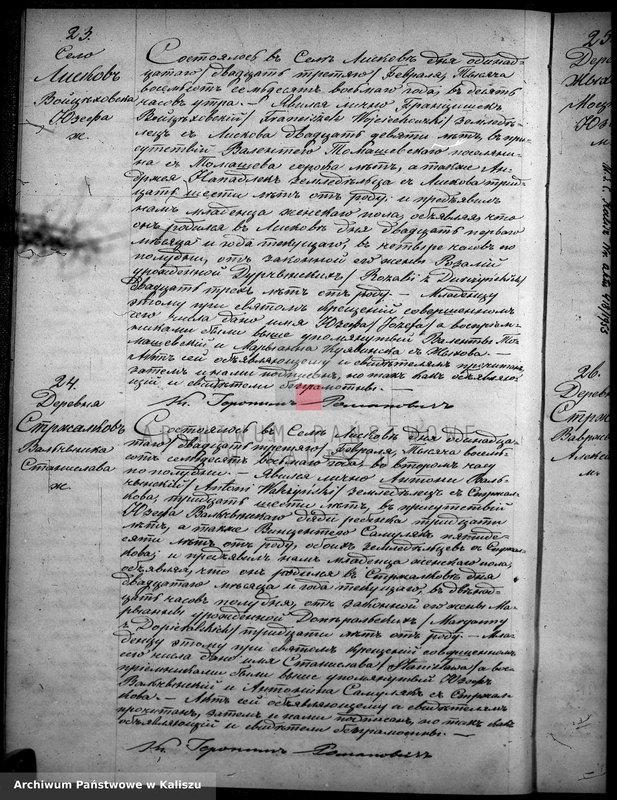 23.
Село
Лисковъ
Войцѣховска
Юзефа
ж.
Состоялось въ Селѣ Лисковъ дня одинад-
цатаго/ двадцать третяго/ Февраля, Тысяча
восемьсотъ семьдесятъ восьмаго года, въ десять
часовъ утра. — Явился лично Францишекъ
Войцѣховскій/ Franciszek Wojciechowski/ земледѣ-
лецъ съ Лискова двадцать девяти лѣтъ, въ при-
сутствіи Валентего Томашевскаго поселяни-
на съ Томашева сорокъ лѣтъ, а также Ан-
држея земледѣльца съ Лискова трид-
цать шести лѣтъ отъ роду. и предъявилъ
намъ младенца женскаго пола, объявляя, что
онъ родился въ Лисковѣ дня двадцать перваго
мѣсяца и года текущаго, въ четыре часовъ по
полудни, отъ законной его жены Розаліи
урожденной
двадцать трехъ лѣтъ отъ роду. — Младенцу
этому при святомъ крещеніи совершенномъ
сего числа дано имя Юзефа/ Józefa/ а воспріем-
никами были выше упомянутый Валенты То-
машевскій и Марьянна съ —
Актъ сей объявляющему и свидѣтелямъ прочитанъ,
затемъ и нами подписанъ, но такъ какъ объявляю-
щій и свидѣтели безграмотны. —
Кс. Геронимъ Романовичъ
24
Деревня
Стржалковъ
Валчиньска
Станислава
ж.
Состоялось въ Селѣ Лисковъ дня одинадца-
таго/ двадцать третяго/ Февраля, Тысяча восемь-
сотъ семьдесятъ восьмаго года, во второмъ часу
по полудни. — Явился лично Антони Валь-
/ Antoni / земледѣлецъ съ Стржал-
кова, тридцать шести лѣтъ, въ присутствіи
Юзефа дяди ребенка тридцати
лѣтъ, а также Винцентего Самуляка пятиде-
сяти лѣтъ отъ роду, обоихъ земледѣльцевъ съ Стржал-
кова; и предъявилъ намъ младенца женскаго пола,
объявляя, что онъ родился въ Стржалковѣ дня
двадцатаго мѣсяца и года текущаго, въ двѣнад-
цать часовъ полудня, отъ законной его жены Ма-
рьянны урожденной / Maryanny
/ тридцати лѣтъ отъ роду. — Мла-
денцу этому при святомъ крещеніи совершенномъ
сего числа дано имя Станислава/ Stanisława/ а вос-
пріемниками были выше упомянутый Юзефъ
и Антонина Самулякъ съ Стржал-
кова. — Актъ сей объявляющему и свидѣтелямъ
прочитанъ, затемъ и нами подписанъ, но такъ какъ
объявляющій и свидѣтели безграмотны. —
Кс. Геронимъ Романовичъ
25
26.
ARCHIWUM PAŃSTWOWE
Archiwum Państwowe w Kaliszu